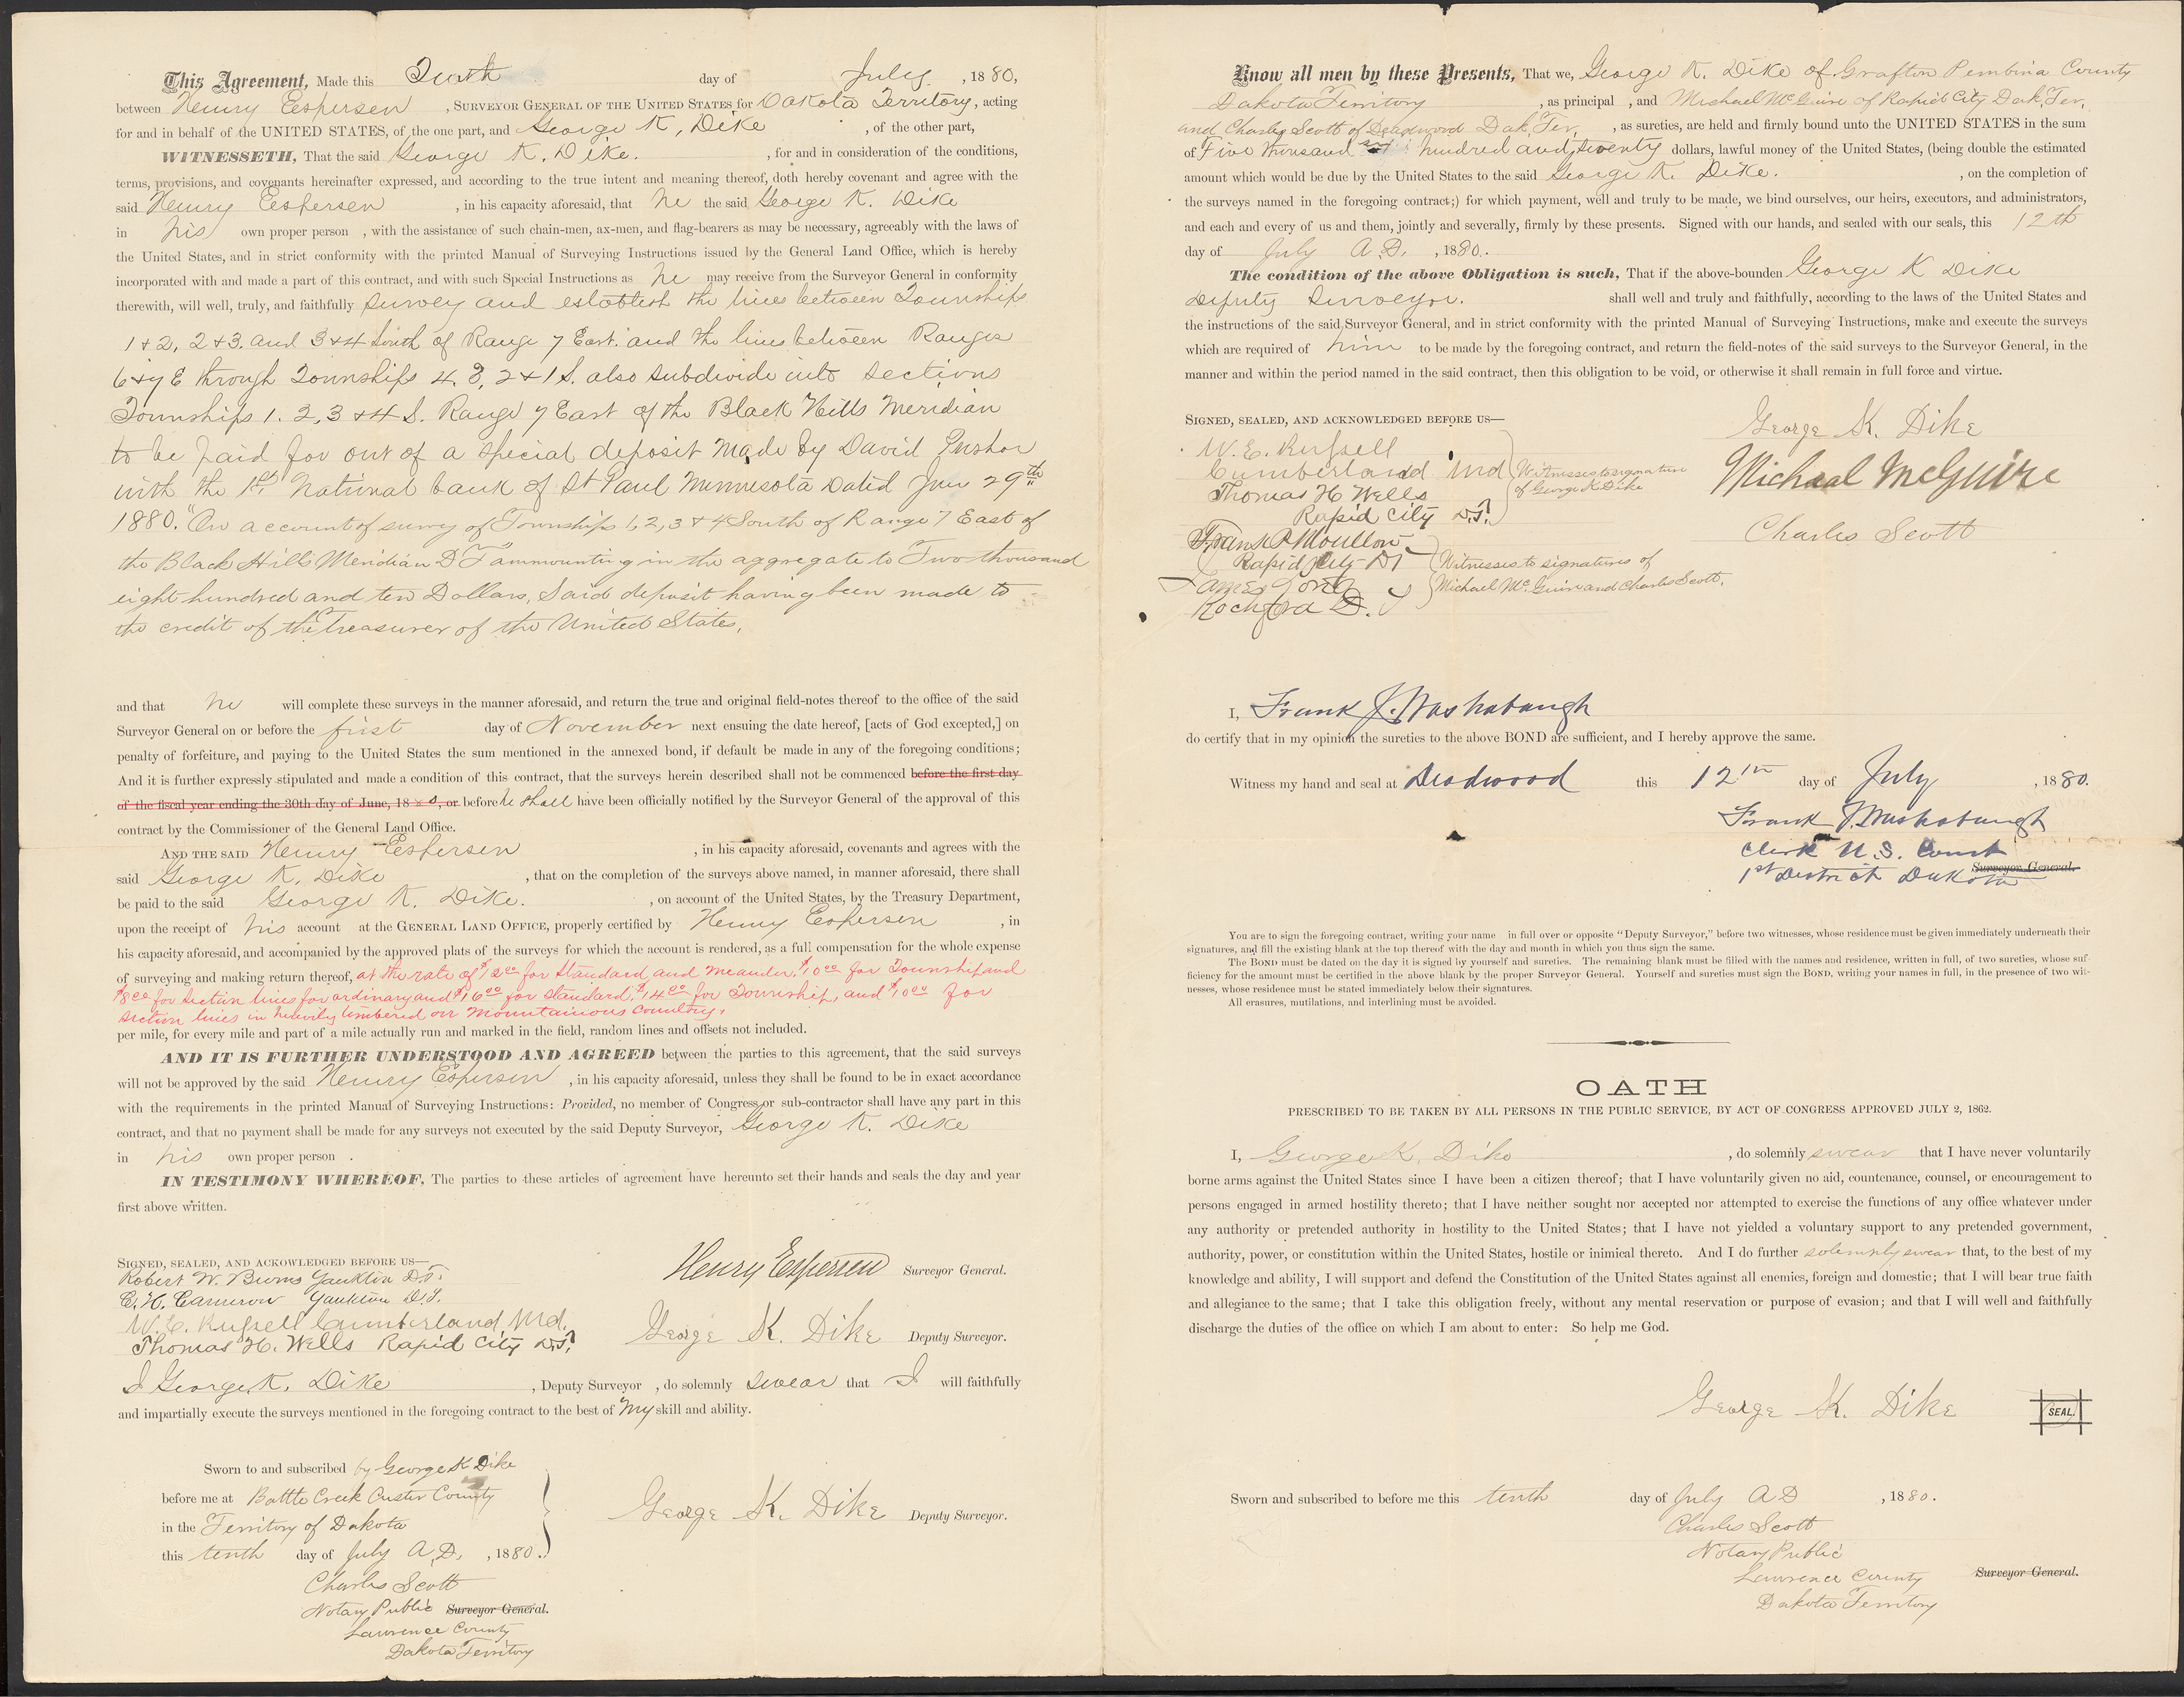 This Agreement, Made this Tenth day of July, 1880,
between Henry Espersen, SURVEYOR GENERAL OF THE UNITED STATES for Dakota Territory, acting
for and in behalf of the UNITED STATES, of the one part, and George K. Dike, of the other part,
WITNESSETH, That the said George K. Dike., for and in consideration of the conditions,
terms, provisions, and covenants hereinafter expressed, and according to the true intent and meaning thereof, doth hereby covenant and agree with the
said Henry Espersen, in his capacity aforesaid, that he the said George K. Dike
in his own proper person, with the assistance of such chain-men, ax-men, and flag-bearers as may be necessary, agreeably with the laws of
the United States, and in strict conformity with the printed Manual of Surveying Instructions issued by the General Land Office, which is hereby
incorporated with and made a part of this contract, and with such Special Instructions as he may receive from the Surveyor General in conformity
therewith, will well, truly, and faithfully survey and establish the lines between Townships
1 & 2, 2 & 3. and 3 & 4 South of Range 7 East. and the lines between Ranges
6 & 7 E through Townships 4. 3, 2 & 1 S. also subdivide into sections
Townships 1. 2, 3 & 4 S. Range 7 East of the Black Hills Meridian
to be paid for out of a special deposit made by David
with the 1st National bank of St Paul Minnesota Dated 29th
1880. "On account of survey of Townships 1, 2, 3 & 4 South of Range 7 East of
the Black Hills Meridian D T ammounting in the aggregate to Two thousand
eight hundred and ten Dollars, Said deposit having been made to
the credit of the Treasurer of the United States,
and that he will complete these surveys in the manner aforesaid, and return the true and original field-notes thereof to the office of the said
Surveyor General on or before the first day of November next ensuing the date hereof, [acts of God excepted,] on
penalty of forfeiture, and paying to the United States the sum mentioned in the annexed bond, if default be made in any of the foregoing conditions;
And it is further expressly stipulated and made a condition of this contract, that the surveys herein described shall not be commenced before the first day
of the fiscal year ending the 30th day of June, 1880, or before he shall have been officially notified by the Surveyor General of the approval of this
contract by the Commissioner of the General Land Office.
AND THE SAID Henry Espersen, in his capacity aforesaid, covenants and agrees with the
said George K. Dike, that on the completion of the surveys above named, in manner aforesaid, there shall
be paid to the said George K. Dike., on account of the United States, by the Treasury Department,
upon the receipt of his account at the GENERAL LAND OFFICE, properly certified by Henry Espersen, in
his capacity aforesaid, and accompanied by the approved plats of the surveys for which the account is rendered, as a full compensation for the whole expense
of surveying and making return thereof, at the rate of $12 00 for Standard and meander, $10 00 for Township and
$8 00 for Section lines for ordinary and $16 00 for Standard, $14 00 for Township, and $10 00 for
section lines in heavily timbered or mountainous country,
per mile, for every mile and part of a mile actually run and marked in the field, random lines and offsets not included.
AND IT IS FURTHER UNDERSTOOD AND AGREED between the parties to this agreement, that the said surveys
will not be approved by the said Henry Espersen, in his capacity aforesaid, unless they shall be found to be in exact accordance
with the requirements in the printed Manual of Surveying Instructions: Provided, no member of Congress or sub-contractor shall have any part in this
contract, and that no payment shall be made for any surveys not executed by the said Deputy Surveyor, George K. Dike
in his own proper person.
IN TESTIMONY WHEREOF, The parties to these articles of agreement have hereunto set their hands and seals the day and year
first above written.
SIGNED, SEALED, AND ACKOWLEDGED BEFORE US—
Robert W. Burns Yankton D.T.
E. H. Cameron Yankton D.T.
W. E. Russell Cumberland Md.
Thomas H. Wells Rapid City D.T.
Henry Espersen Surveyor General.
George K. Dike Deputy Surveyor.
I George K. Dike, Deputy Surveyor, do solemnly swear that I will faithfully
and impartially execute the surveys mentioned in the foregoing contract to the best of my skill and ability.
Sworn to and subscribed by George K Dike
before me at Battle Creek Custer County
in the Territory of Dakota
this tenth day of July A.D., 1880.
George K. Dike Deputy Surveyor.
Charles Scott
Notary Public Surveyor General.
Lawrence County
Dakota Territory
Know all men by these Presents, That we, George K. Dike of Grafton Pembina County
Dakota Territory, as principal, and Michael McGuire of Rapid City Dak. Ter,
and Charles Scott of Deadwood Dak. Ter, as sureties, are held and firmly bound unto the UNITED STATES in the sum
of Five thousand six hundred and twenty dollars, lawful money of the United States, (being double the estimated
amount which would be due by the United States to the said George K. Dike., on the completion of
the surveys named in the foregoing contract;) for which payment, well and truly to be made, we bind ourselves, our heirs, executors, and administrators,
and each and every of us and them, jointly and severally, firmly by these presents. Signed with our hands, and sealed with our seals, this 12th
day of July A.D., 1880.
The condition of the above Obligation is such, That if the above-bounden George K Dike
Deputy Surveyor. shall well and truly and faithfully, according to the laws of the United States and
the instructions of the said Surveyor General, and in strict conformity with the printed Manual of Surveying Instructions, make and execute the surveys
which are required of him to be made by the foregoing contract, and return the field-notes of the said surveys to the Surveyor General, in the
manner and within the period named in the said contract, then this obligation to be void, or otherwise it shall remain in full force and virtue.
SIGNED, SEALED, AND ACKNOWLEDGED BEFORE US—
W. E. Russell
Cumberland Md
Thomas H Wells
Rapid City D.T.
Witnesses to signature
of George K Dike
Rapid City DT
James
Rochford D.
Witnesses to signatures of
Michael McGuire and Charles Scott,
George K. Dike
Michael McGuire
Charles Scott
I, Frank J. Washabaugh
do certify that in my opinion the sureties to the above BOND are sufficient, and I hereby approve the same.
Witness my hand and seal at Deadwood this 12th day of July, 1880.
Frank J. Washabaugh
Clerk U.S. Court
1st District Dakota Surveyor General.
You are to sign the foregoing contract, writing your name in full over or opposite "Deputy Surveyor," before two witnesses, whose residence must be given immediately underneath their
signatures, and fill the existing blank at the top thereof with the day and month in which you thus sign the same.
The BOND must be dated on the day it is signed by yourself and sureties. The remaining blank must be filled with the names and residence, written in full, of two sureties, whose suf-
ficiency for the amount must be certified in the above blank by the proper Surveyor General. Yourself and sureties must sign the BOND, writing your names in full, in the presence of two wit-
nesses, whose residence must be stated immediately below their signatures.
All erasures, mutilations, and interlining must be avoided.
OATH
PRESCRIBED TO BE TAKEN BY ALL PERSONS IN THE PUBLIC SERVICE, BY ACT OF CONGRESS APPROVED JULY 2, 1862.
I, George K. Dike, do solemnly swear that I have never voluntarily
borne arms against the United States since I have been a citizen thereof; that I have voluntarily given no aid, countenance, counsel, or encouragement to
persons engaged in armed hostility thereto; that I have neither sought nor accepted nor attempted to exercise the functions of any office whatever under
any authority or pretended authority in hostility to the United States; that I have not yielded a voluntary support to any pretended government,
authority, power, or constitution within the United States, hostile or inimical thereto. And I do further solemnly swear that, to the best of my
knowledge and ability, I will support and defend the Constitution of the United States against all enemies, foreign and domestic; that I will bear true faith
and allegiance to the same; that I take this obligation freely, without any mental reservation or purpose of evasion; and that I will well and faithfully
discharge the duties of the office on which I am about to enter: So help me God.
George K. Dike SEAL.
Sworn and subscribed to before me this tenth day of July A D, 1880.
Charles Scott
Notary Public
Lawrence County Surveyor General.
Dakota Territory